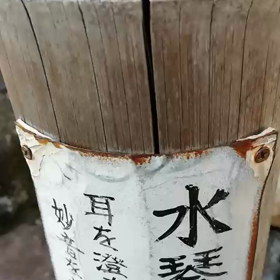 水琴
耳を澄
妙音